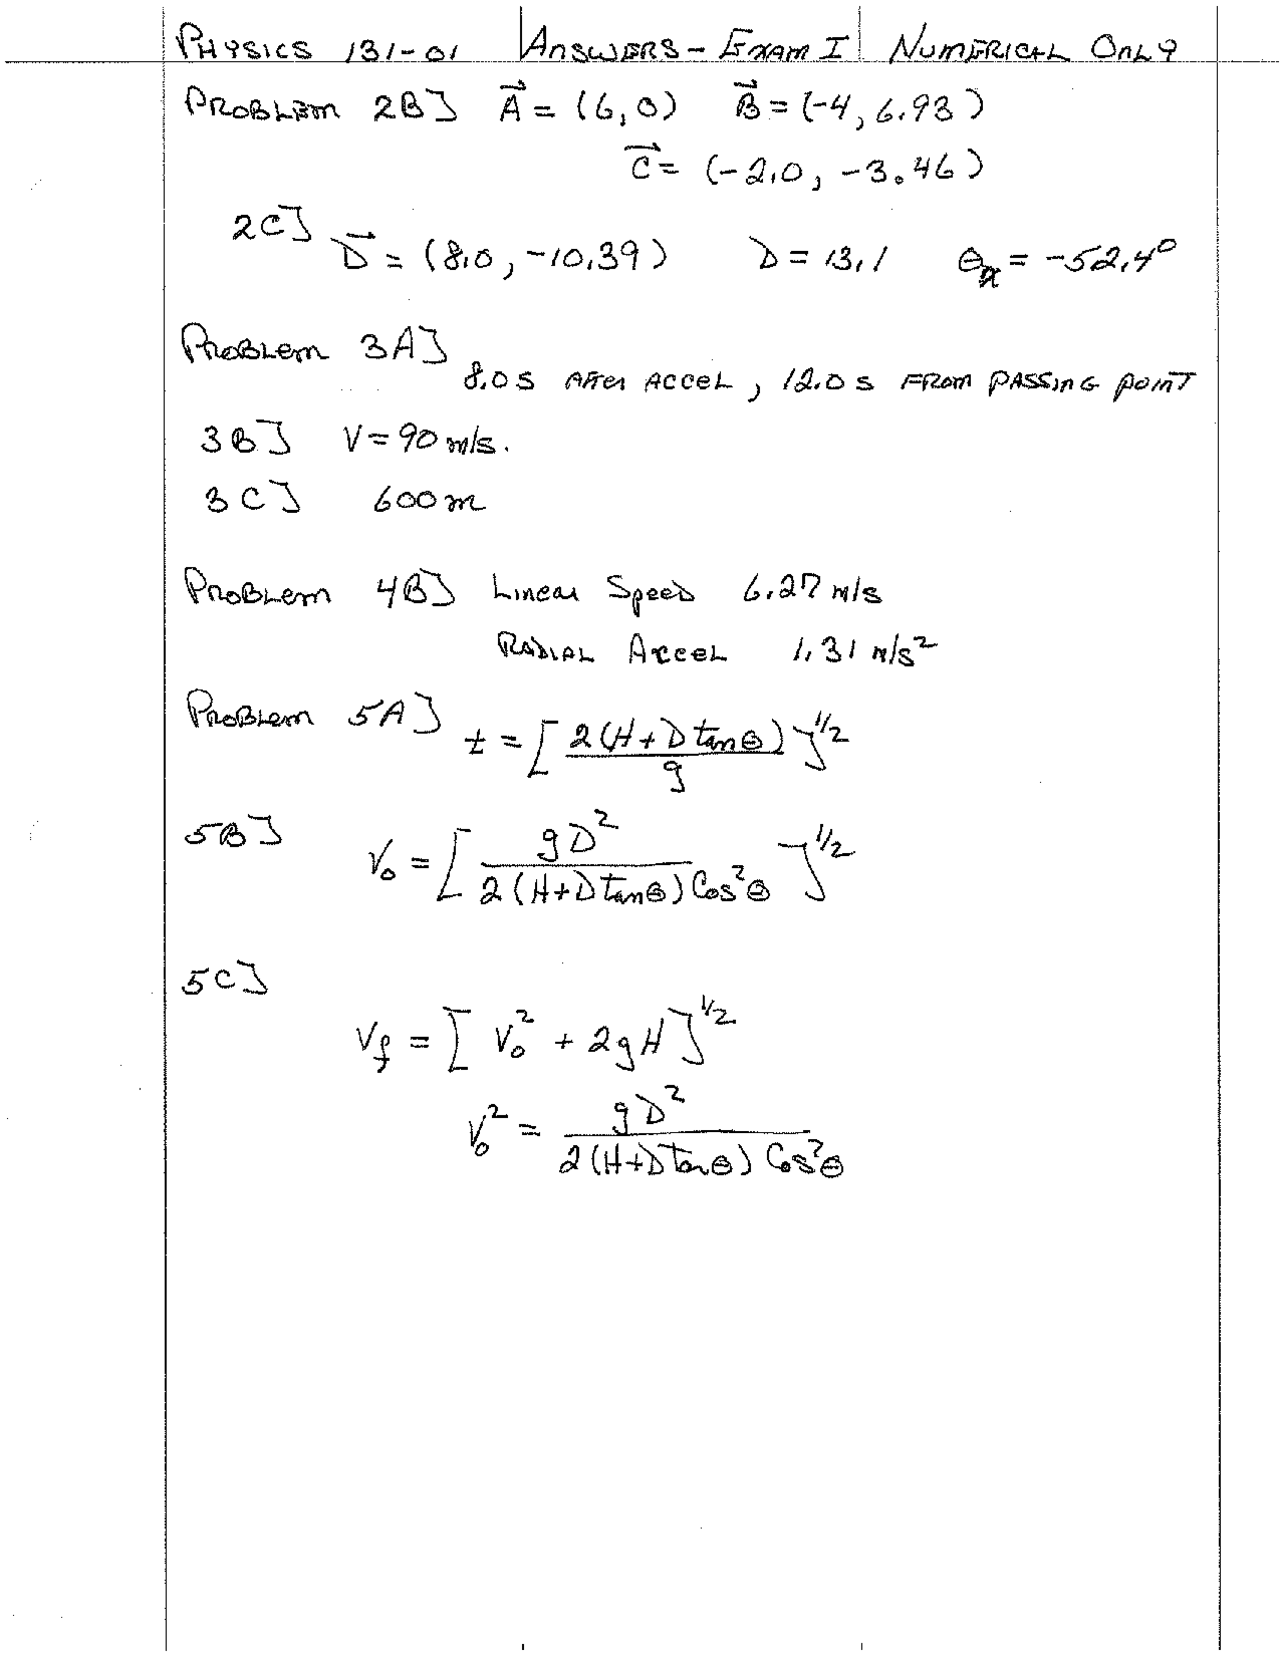 PHYSICS 131-01 ANSWERS - EXAM I NUMERICAL ONLY
PROBLEM 2B] A⃗ = (6,0) B⃗ = (-4, 6.93)
C⃗ = (-2.0, -3.46)
2C] D⃗ = (8.0, -10.39) D = 13.1 θx = -52.4°
PROBLEM 3A] 8.0 s AFTER ACCEL, 12.0 s FROM PASSING POINT
3B] V = 90 m/s.
3C] 600 m
PROBLEM 4B] LINEAR SPEED 6.27 m/s
RADIAL ACCEL 1.31 m/s²
PROBLEM 5A] t = [2(H+D tanθ)/g]^1/2
5B] V₀ = [gD²/2(H+D tanθ) Cos²θ]^1/2
5C]
Vf = [V₀² + 2gH]^1/2
V₀² = gD²/2(H+D tanθ) Cos²θ